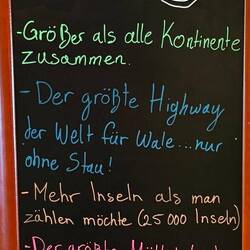 -Größer als alle Kontinente
zusammen.
-Der größte Highway
der Welt für Wale...nur
ohne Stau!
-Mehr Inseln als man
zählen möchte (25 000 Inseln)
-Der größte